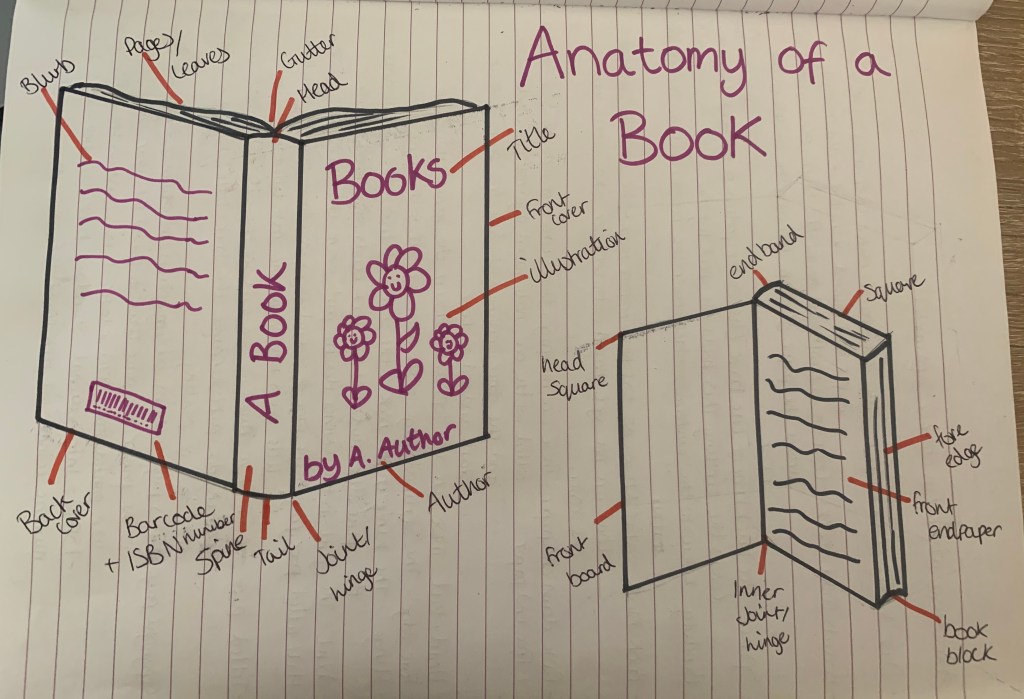 Anatomy of a
Book
Blurb
Pages/
Leaves
Gutter
Head
Title
Front
cover
illustration
Books
A Book
by A. Author
Back
cover
Barcode
+ ISBN number
Spine
Tail
Joint/
hinge
Author
endband
Square
head
Square
fore
edge
front
endpaper
front
board
Inner
Joint/
hinge
book
block